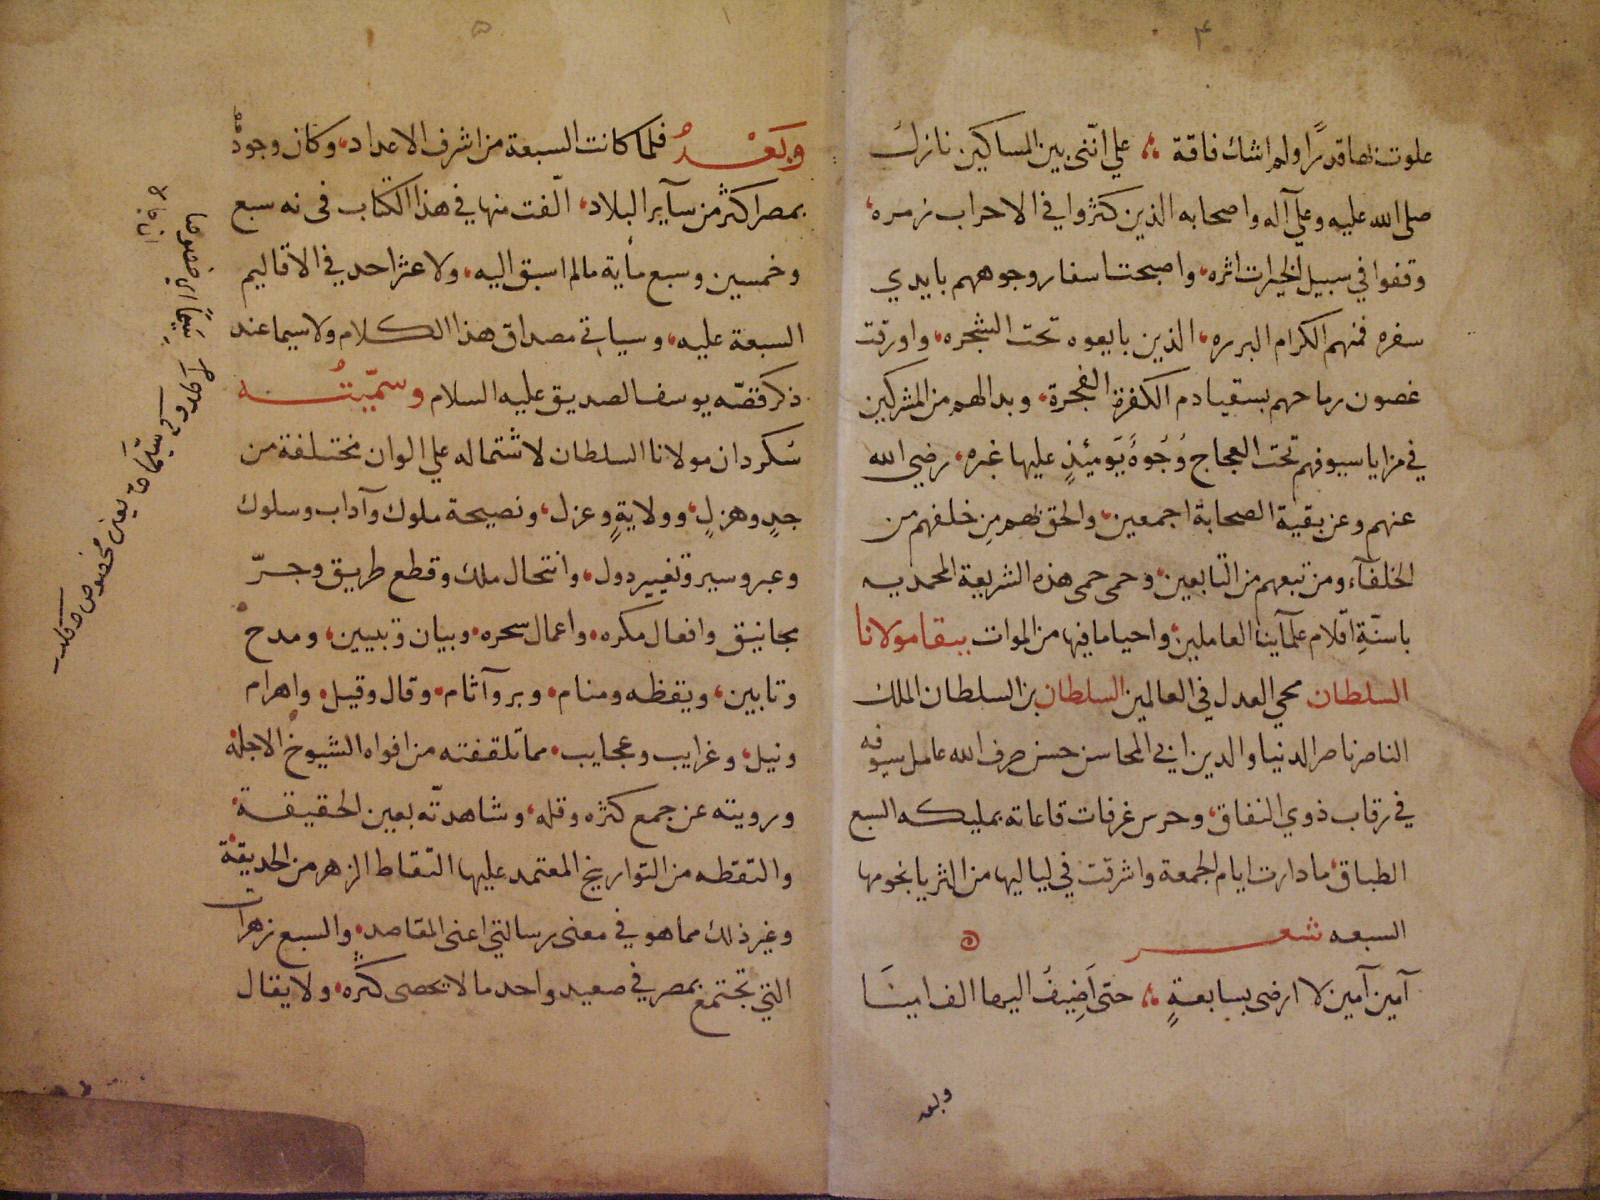 ۴
علوت بها قدرًا ولم اشك فاقة ؞ علي انّني بين المساكين نازل
صلى الله عليه وعلي آله واصحابه الذين كثروا في الاحزاب زمره،
وقفوا في سبيل الخيرات اثره، واصبحت اسفار وجوههم بايدي
سفره فمنهم الكرام البرره، الذين بايعوه تحت الشجره، واورقت
غصون رماحهم بسقيا دم الكفرة الفجرة، وبدا لهم من المشركين
في مرايا سيوفهم تحت العجاج وُجُوهٌ يَوميئذٍ عليها غبره، رضي الله
عنهم وعن بقية الصحابة اجمعين، والحق بهم مِن خلفهم من
الخلفآء ومن تبعهم من التابعين، وحمى حمى هذه الشريعة المحمديه
باسنّةِ اقلام علمآينا العاملين، واحيا ما فيها من الموات ببقا مولانا
السلطان محي العدل في العالمين السلطان بن السلطان الملك
الناصر ناصر الدنيا والدين ابي المحاسن حسن صرف الله عامل سيوفه
في رقاب ذوي النفاق، وحرس غرفات قاعاته بمليكه السبع
الطباق، ما دارت ايام الجمعة واشرقت في لياليها من الثريا نجومها
السبعه شعر
آمين آمين لا ارضى بسابعةٍ ؞ حتى اَضِيفُ اليها الف امينَا
وبعد
۵
وَبَعْدُ فلما كانت السبعة من اشرف الاعداد، وكان وجوده
بمصر اكثر من سآير البلاد، الّفت منها في هذا الكتاب في نه سبع
وخمسين وسبع مأية ما لم اسبق اليه، ولا عثر احد في الاقاليم
السبعة عليه، وسياتي مصداق هذا الكلام ولا سيما عند
ذكر قصّه يوسف الصديق عليه السلام وسمّيتُه
سُكردان مولانا السلطان لاشتماله علي الوان مختلفة من
جدٍ وهزلٍ، وولايةٍ وعزل، ونصيحة ملوك وآداب وسلوك
وعبر وسير وتغيير دول، وانتحال ملك وقطع طريق وجرّ
مجانيق وافعال مكره، واعمال سحره، وبيان وتبيين، ومدح
وتابين، ويقظه ومنام، وبر وآثام، وقال وقيل، واهرام
ونيل، وغرايب وعجايب، مما تلقفته من افواه الشيوخ الاجلة
ورويته عن جمع كثره وقله، وشاهدتّه بعين الحقيقة،
والتقطه من التواريخ المعتمد عليها التقاط الزهر من الحديقة
وغير ذلك مما هو في معنى رسالتي اعنى المقاصد، والسبع زهرات
التي تجتمع بمصر في صعيد واحد ما لا يحصى كثره، ولا يقال